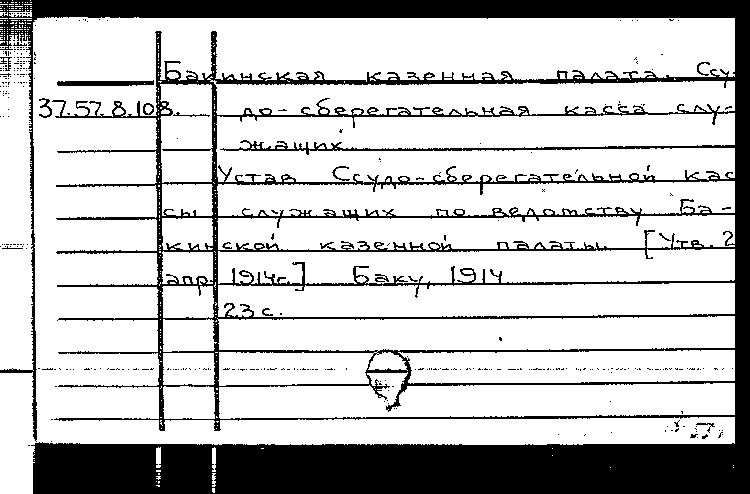 Бакинская казенная палата. Ссу-
37.57.8.108. до-сберегательная касса слу-
жащих.
Устав Ссудо-сберегательной кас
сы служащих по ведомству Ба-
кинской казенной палаты. [Утв. 2
апр. 1914г.] Баку, 1914
23 с.